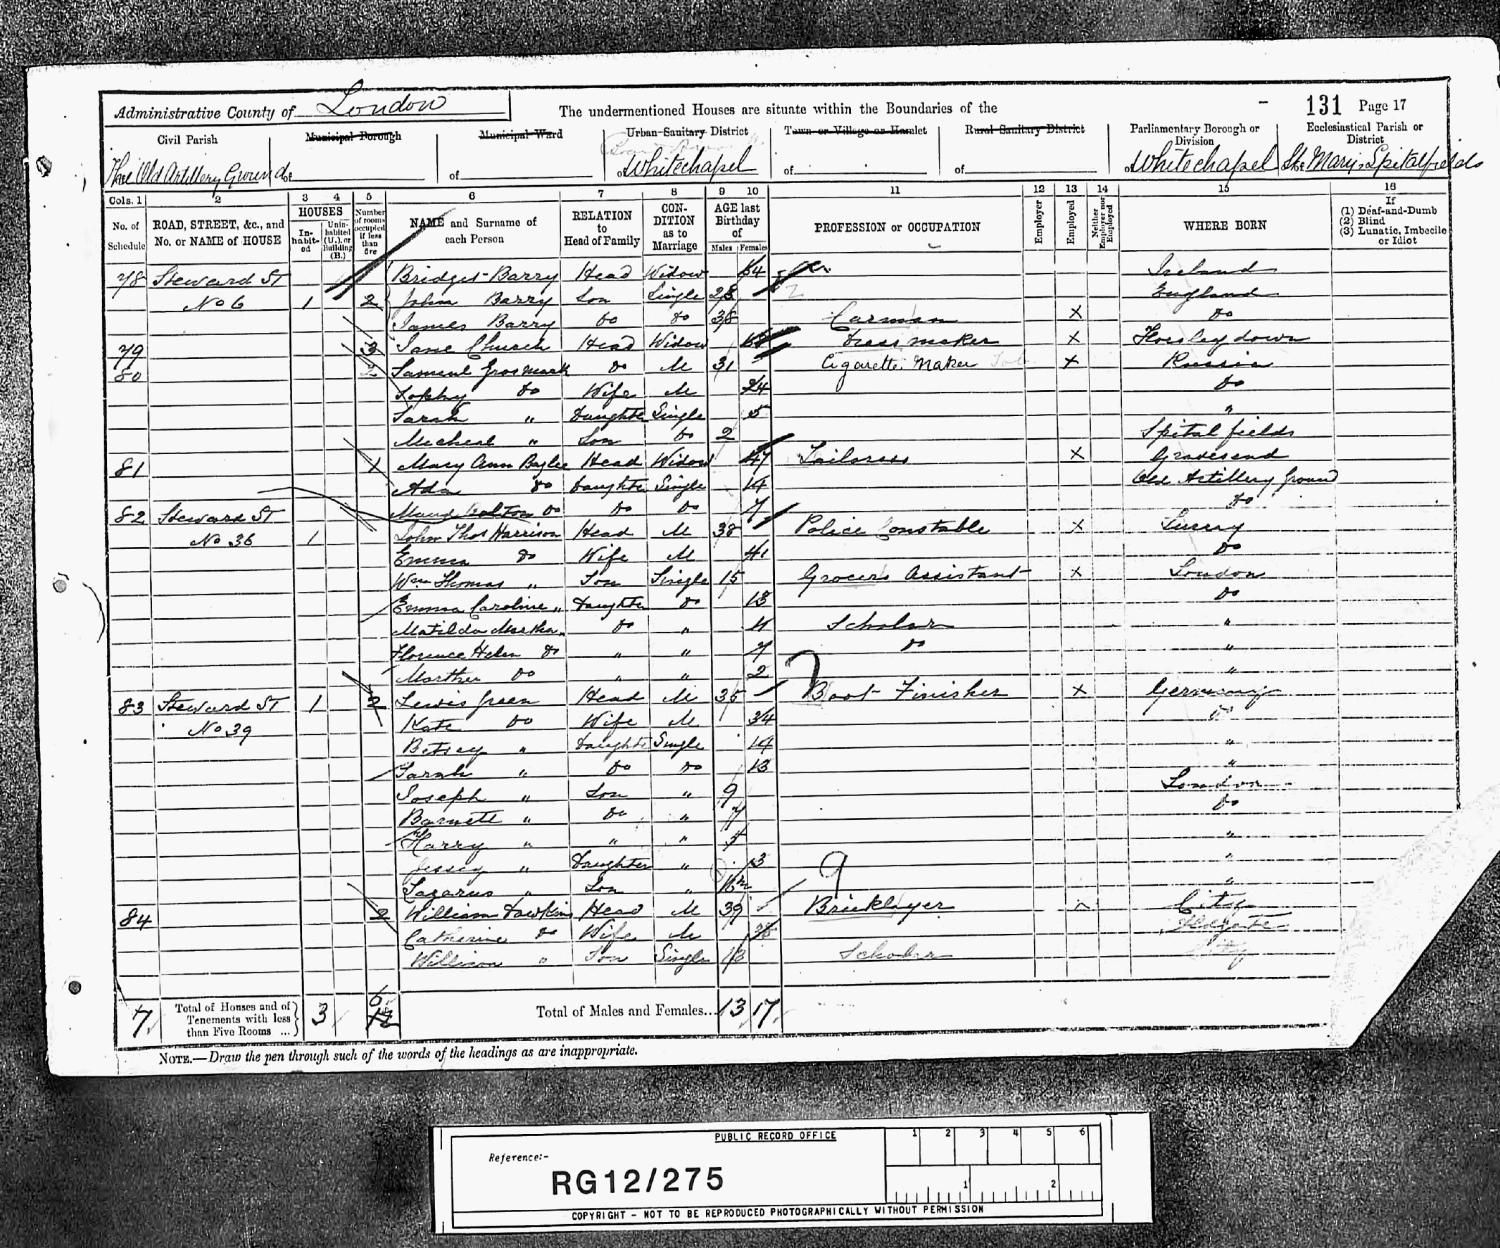 Administrative County of London
The undermentioned Houses are situate within the Boundaries of the
131 Page 17
Civil Parish Municipal Borough Municipal Ward Urban Sanitary District Town or Village or Hamlet Rural Sanitary District Parliamentary Borough or Division Ecclesiastical Parish or District
The Old Artillery Ground of of of Whitechapel of of of Whitechapel Mary Spitalfields
Cols. 1 2 3 4 5 6 7 8 9 10 11 12 13 14 15 16
No. of Schedule
ROAD, STREET, &c., and No. or NAME of HOUSE
HOUSES
In-habit-ed
Unin-habited (U.), or Building (B.)
Number of rooms occupied if less than five
NAME and Surname of each Person
RELATION to Head of Family
CON-DITION as to Marriage
AGE last Birthday of
Males Females
PROFESSION or OCCUPATION
Employer
Employed
Neither Employer nor Employed
WHERE BORN
If
(1) Deaf-and-Dumb
(2) Blind
(3) Lunatic, Imbecile or Idiot
78 Steward St Bridget Barry Head Widow 64 Ireland
No 6 1 2 John Barry Son Single 28 England
James Barry Do Do 38 Carman x Do
79 3 Jane Church Head Widow Dress maker x Horsleydown
80 2 Samuel Grosmark Do M 31 Cigarette Maker x Russia
Sophy Do Wife M 24 Do
Sarah " Daughter Single 5 "
Micheal " Son Do 2 Spital fields
81 1 Mary Ann Head Widow 47 Tailoress x Gravesend
Ada Do Daughter Single 14 Old Artillery Ground
Maud Do Do Do 7 Do
82 Steward St John Thos Harrison Head M 38 Police Constable x Surrey
No 36 1 Emma Do Wife M 41 Do
Wm Thomas " Son Single 15 Grocers Assistant x London
Emma Caroline " Daughter Do 13 Do
Matilda Martha " Do " 11 Scholar "
Florence Helen Do " " 7 Do "
Martha Do " " 2 "
83 Steward St 1 2 Lewis Green Head M 35 Boot Finisher x Germany
No 39 Kate Do Wife M 34 Do
Betsey " Daughter Single 14 "
Sarah " Do Do 13 "
Joseph " Son " 9 London
Barnett " Do " 7 Do
Harry " " " 5 "
Jessey " Daughter " 3 "
Lazarus " Son " "
84 2 William Dawkins Head M 39 Bricklayer x City
Catherine Do Wife M 36
William " Son Single 13 Scholar City
7 Total of Houses and of Tenements with less than Five Rooms ... 3 6 12 Total of Males and Females... 13 17
NOTE.—Draw the pen through such of the words of the headings as are inappropriate.
PUBLIC RECORD OFFICE
1 2 3 4 5 6
Reference:-
RG12/275
1 2
COPYRIGHT - NOT TO BE REPRODUCED PHOTOGRAPHICALLY WITHOUT PERMISSION